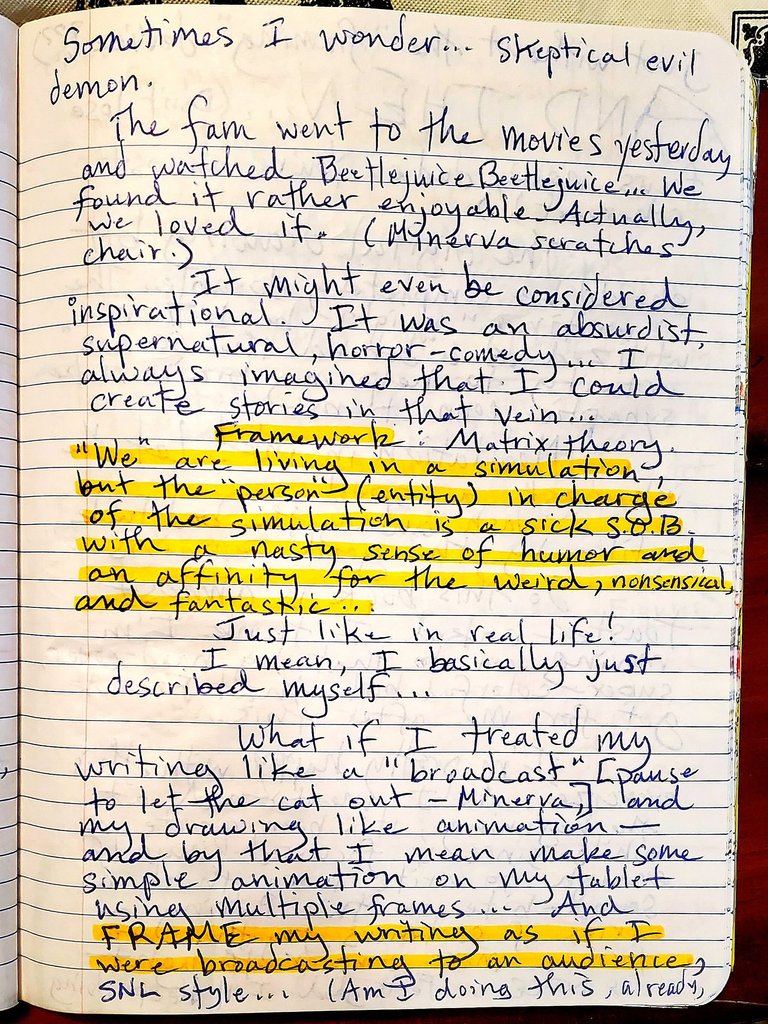 Sometimes I wonder... skeptical evil
demon.
The fam went to the movies yesterday
and watched Beetlejuice Beetlejuice... We
found it rather enjoyable. Actually,
we loved it. (Minerva scratches
chair.)
It might even be considered
inspirational. It was an absurdist,
supernatural, horror-comedy... I
always imagined that I could
create stories in that vein...
Framework: Matrix theory.
"We" are living in a simulation,
but the "person" (entity) in charge
of the simulation is a sick S.O.B.
with a nasty sense of humor and
an affinity for the weird, nonsensical,
and fantastic...
Just like in real life!
I mean, I basically just
described myself...
What if I treated my
writing like a "broadcast" [pause
to let the cat out - Minerva,] and
my drawing like animation —
and by that I mean make some
simple animation on my tablet
using multiple frames... And
FRAME my writing as if I
were broadcasting to an audience,
SNL style... (Am I doing this, already,